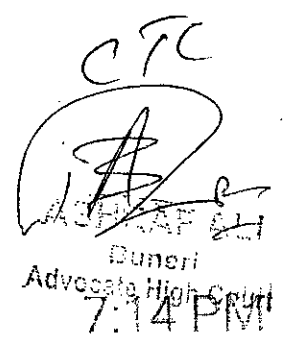 CTC
ASHRAF ALI
Duneri
Advocate High Court
7:14 PM